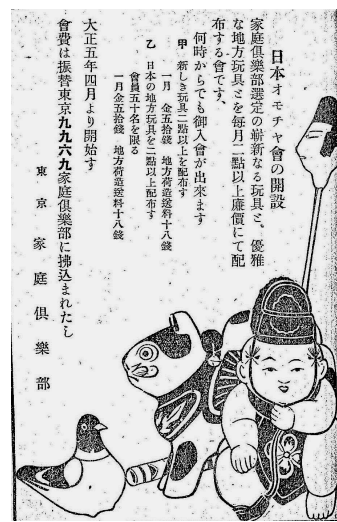 日本オモチャ會の開設
家庭俱樂部選定の嶄新なる玩具と、優雅
な地方玩具とを每月二點以上廉價にて配
布する會です、
何時からでも御入會が出來ます
甲 新しき玩具二點以上を配布す
一月 金五拾錢 地方荷造送料十八錢
乙 日本の地方玩具を二點以上配布す
會員五十名を限る
一月金五拾錢 地方荷造送料十八錢
大正五年四月より開始す
會費は振替東京九九六九家庭俱樂部に拂込まれたし
東京 家庭俱樂部